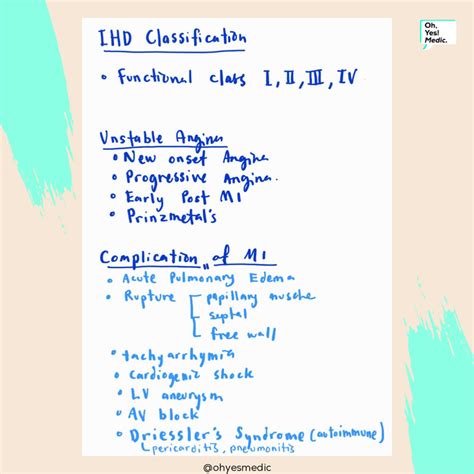 Oh,
Yes!
Medic.
IHD Classification
• Functional class I, II, III, IV
Unstable Angina
• New onset Angina
• Progressive Angina.
• Early Post MI
• Prinzmetal's
Complication of MI
• Acute Pulmonary Edema
• Rupture papillary muscle
septal
free wall
• tachyarrhymia
• Cardiogenic shock
• LV aneurysm
• AV block
• Driessler's Syndrome (autoimmune)
pericarditis, pneumonitis
@ohyesmedic